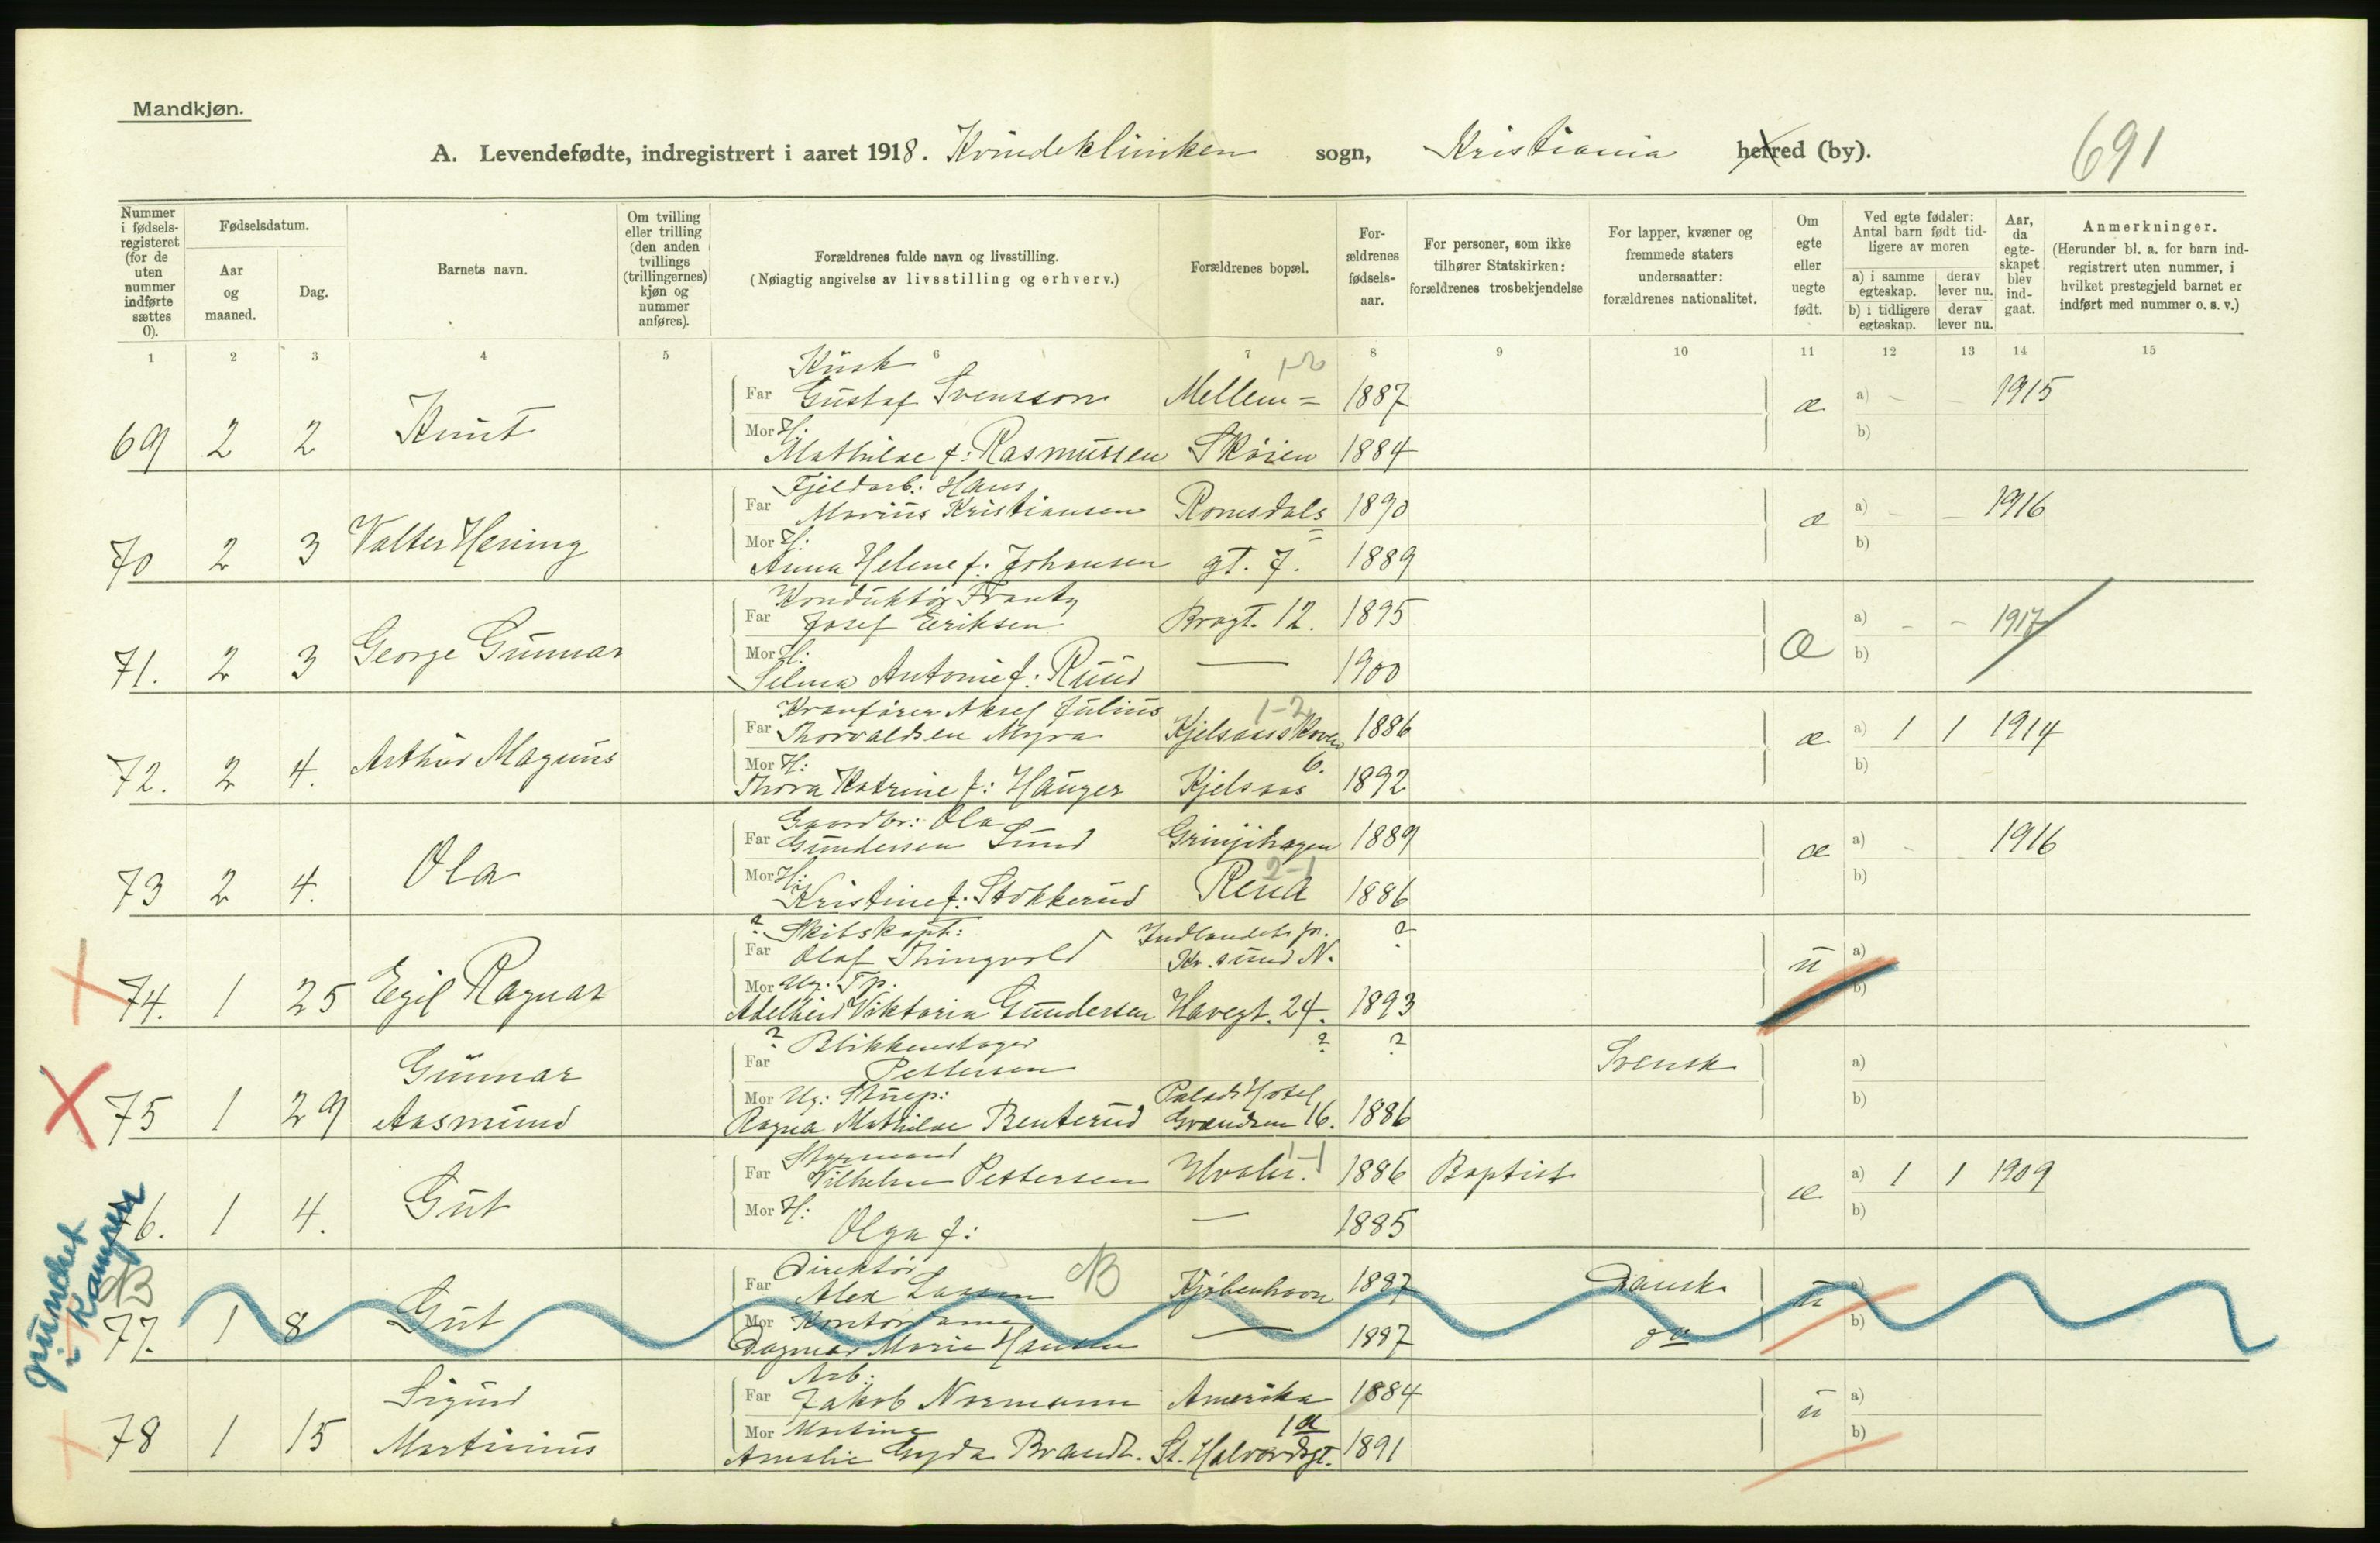 Mandkjøn.
A. Levendefødte, indregistrert i aaret 1918. Kvindeklinikken sogn, Kristiania herred (by). 691
Nummer i fødsels-registeret (for de uten nummer indførte sættes 0).
Fødselsdatum.
Aar og maaned.
Dag.
Barnets navn.
Om tvilling eller trilling (den anden tvillings (trillingernes) kjøn og nummer anføres).
Forældrenes fulde navn og livsstilling.
(Nøiagtig angivelse av livsstilling og erhverv.)
Forældrenes bopæl.
For-ældrenes fødsels-aar.
For personer, som ikke tilhører Statskirken: forældrenes trosbekjendelse
For lapper, kvæner og fremmede staters undersaatter: forældrenes nationalitet.
Om egte eller uegte født.
Ved egte fødsler: Antal barn født tid-ligere av moren
a) i samme egteskap. derav lever nu.
b) i tidligere egteskap. derav lever nu.
Aar, da egte-skapet blev ind-gaat.
Anmerkninger.
(Herunder bl. a. for barn ind-registrert uten nummer, i hvilket prestegjeld barnet er indført med nummer o. s. v.)
1 2 3 4 5 6 7 8 9 10 11 12 13 14 15
Kusk 1-2
Far Gustaf Svensson Mellem= 1887 a) - - 1915
69 2 2 Knut æ
Mor H: b)
Mathilde f: Rasmussen Skøien 1884
Fjeldarb: Hans
Far Marius Kristiansen Romsdals 1890 a) - - 1916
70 2 3 Valter Hening æ
Mor H: = b)
Anna Helene f: Johansen gt. 7. 1889
Konduktør Frantz
Far Josef Eriksen Brogt. 12. 1895 a) - - 1917
71. 2 3 George Gunnar æ
Mor H: b)
Selma Antonie f: Ruud — 1900
Kranfører Aksel Julius 1-2
Far Thorvaldsen Myra Kjelsaasskoven 1886 a) 1 1 1914
72. 2 4. Arthur Magnus æ
Mor H: 6. b)
Thora Katrine f: Hauger Kjelsaas 1892
Gaardbr: Ola
Far Gundersen Sund 1889 a) - 1916
73 2 4. Ola æ
Mor H: 2-1 b)
Kristine f: Stokkerud Rena 1886
? Skibskapt: Indlandets pr. ?
Far Olaf Thingvold Kr.sund N. a)
74. 1 25 Egil Ragnar u
Mor Ug. Tp. b)
Adelheid Viktoria Gundersen Havegt. 24. 1893
? Blikkenslager ? ?
Far Pettersen Svensk a)
75 1 29 Gunnar Aasmund
Mor Ug: Strup: Palads Hotel b)
Ragna Mathilde Benterud Grændsen 16. 1886
Styrmand 1-1
Far Vilhelm Pettersen Hvaler. 1886 Baptist a) 1 1 1909
76. 1 4. Gut æ
Mor H: b)
Olga f: — 1885
Direktør NB
Far Alex Larsen Kjøbenhavn 1887 Dansk a)
NB
77. 1 8 Gut u
Mor Kontordame b)
Dagmar Marie Hansen — 1897 do
Arb:
Far Jakob Normann Amerika 1884 a)
78 1 15 Sigurd Martinius u
Mor Martine 1a b)
Amalie Gyda Brandt. St. Halvardsgt. 1891